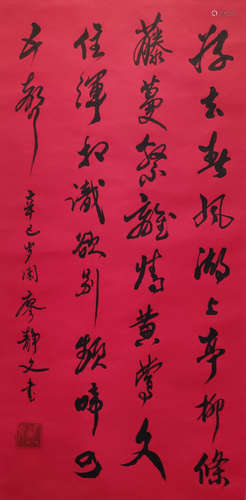 好去春風湖上亭柳條
藤蔓繫離情黄鶯久
住渾相識欲别頻啼四
五聲
辛巳岁閏廖静文書